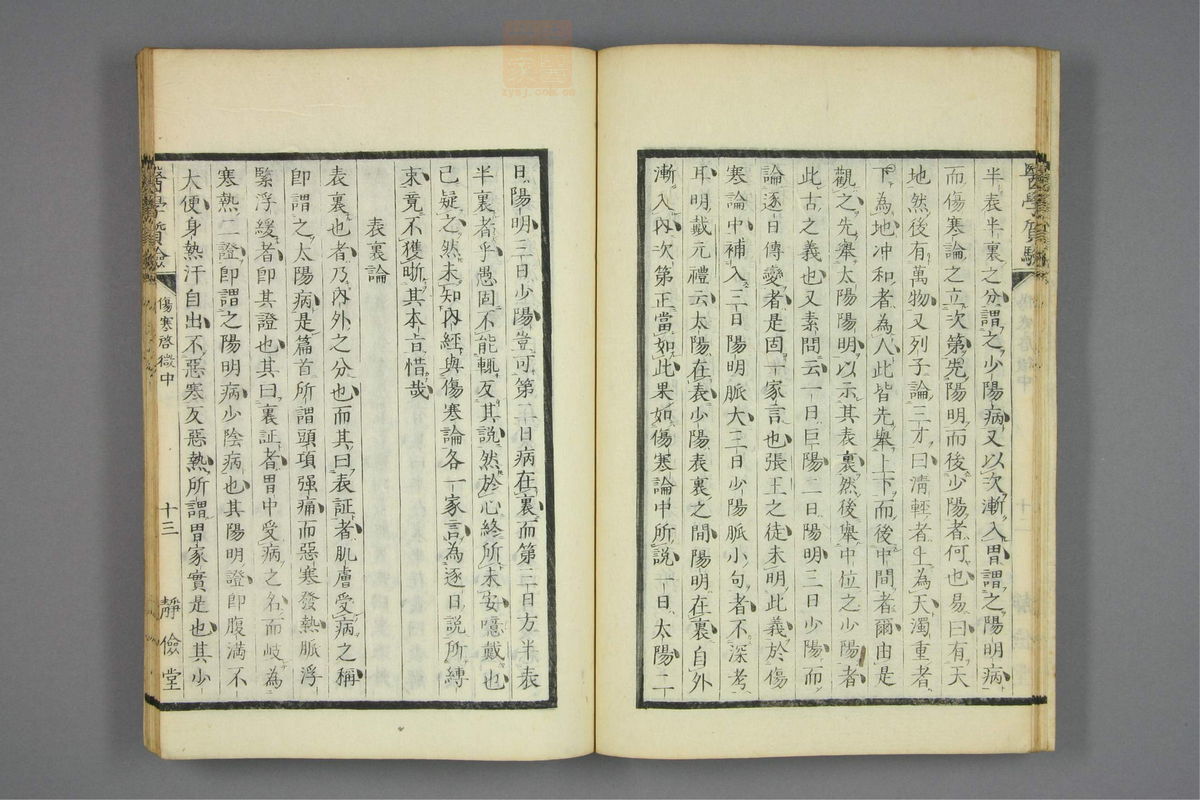 醫學質驗
半表半裏之分謂之少陽病又以次漸入胃謂之陽明病
而傷寒論之立次第先陽明而後少陽者何也易曰有天
地然後有萬物又列子論三才曰清輕者上為天濁重者
下為地冲和者為人此皆先舉上下而後中間者爾由是
觀之先舉太陽陽明以示其表裏然後舉中位之少陽者
此古之義也又素問云一日巨陽二日陽明三日少陽而
論逐日傳變者是固一家言也張王之徒未明此義於傷
寒論中補入二日陽明脈大三日少陽脈小句者不深考
耳明戴元禮云太陽在表少陽表裏之間陽明在裏自外
漸入內次第正當如此果如傷寒論中所說一日太陽二
日陽明三日少陽豈可第二日病在裏而第三日方半表
半裏者乎愚固不能輒反其說然於心終所未安噫戴也
已疑之然未知內經與傷寒論各一家言為逐日說所縛
束竟不獲晰其本旨惜哉
表裏論
表裏也者乃內外之分也而其曰表証者肌膚受病之稱
即謂之太陽病是篇首所謂頭項强痛而惡寒發熱脈浮
緊浮緩者即其證也其曰裏証者胃中受病之名而岐為
寒熱二證即謂之陽明病少陰病也其陽明證即腹滿不
大便身熱汗自出不惡寒反惡熱所謂胃家實是也其少
醫學質驗
傷寒啓微中
十三
靜儉堂
zysj.com.cn